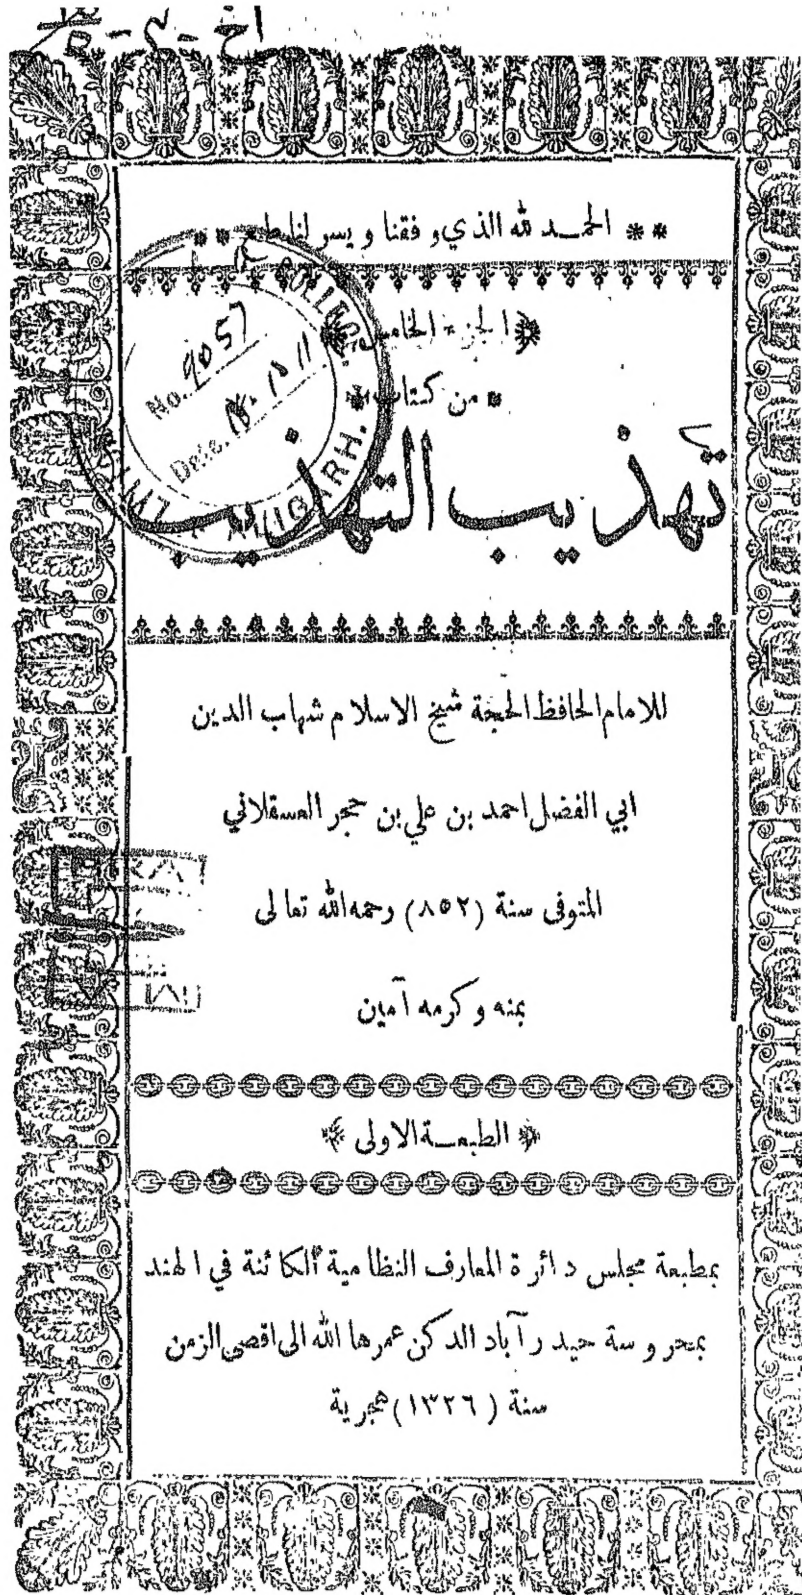 اخ - ٣ -
** الحمد لله الذي وفقنا ويسر لنا طبع **
﴿الجزء الخامس﴾
* من كتاب *
تهذيب التهذيب
No. 9057
Date.
ALIGARH.
للامام الحافظ الحجة شيخ الاسلام شهاب الدين
ابي الفضل احمد بن علي بن حجر العسقلاني
المتوفى سنة (٨٥٢) رحمه الله تعالى
بمنه وكرمه آمين
﴿الطبعة الاولى﴾
بمطبعة مجلس دائرة المعارف النظامية الكائنة في الهند
بمحروسة حيدر آباد الدكن عمرها الله الى اقصى الزمن
سنة (١٣٢٦) هجرية